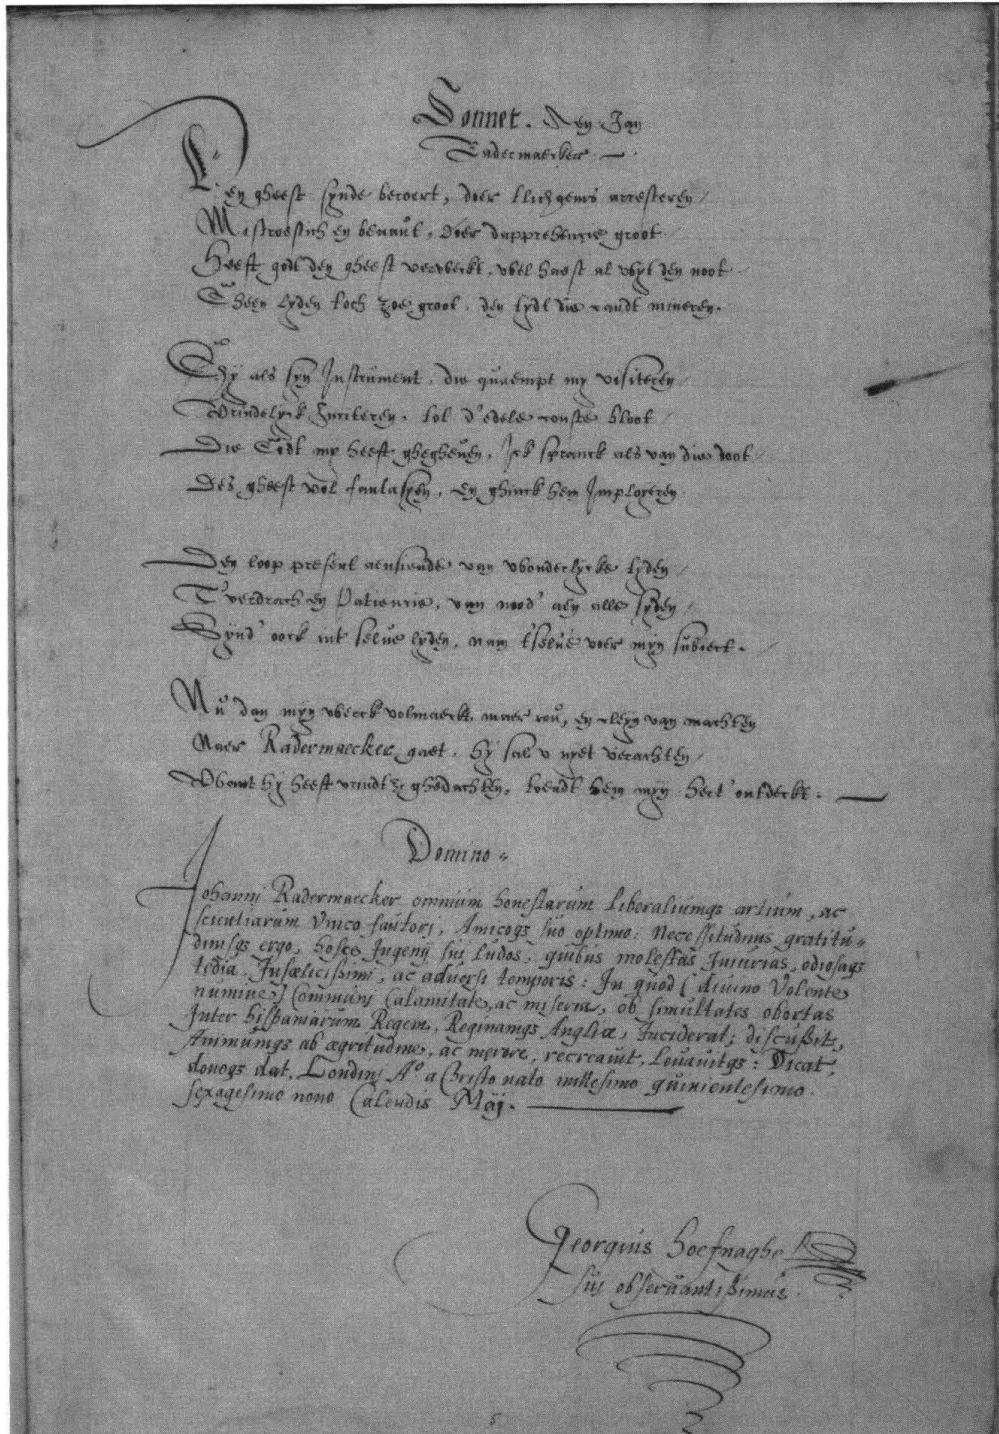 Sonnet. Aen Jan
Radermaecker
Den gheest synde beroert, doer t'lichaems arresteren /
Mistroestich en benaut, doer dapprehencie groot
Heeft godt den gheest verweckt, wel haest al wyt den noot
Gheen lyden toch zoe groot, den tydt die candt mineren.
Ghy als syn Instrument, die quaempt my visiteren /
Vrindelyck Inciteren, tot d'edele conste bloot /
Die Godt my heeft ghegheven, Ick spranck als van die doot /
Des gheest vol fantasyen, en ghinck hem Imploreren
Den loop present aensiende van wonderlycke tyden /
T verdrach en Patiencie, van nood' aen alle syden /
Synd' oock int selue lyden, nam t'selue voer myn subiect.
Nu dan myn werck volmaeckt, maer rou, en cleyn van machten
Naer Radermaecker gaet, hy sal v nyet verachten /
Want hy heeft vrindts ghedachten, toendt hem myn hert ontdeckt.
Domino
Iohanni Radermaecker omnium honestarum Liberaliumqs artium, ac
scientiarum Vnico fautori, Amicoqs suo optimo: Necessitudinis gratitu=
dinisqs ergo, hosce Ingenij sui ludos, quibus molestas Iniurias, odiosaqs
tedia, Infoelicissimi, ac aduersi temporis: In quod (diuino Volente
numine) Communi Calamitate, ac miseria, ob simultates obortas
Inter hispaniarum Regem, Reginamqs Angliæ, Inciderat; discussit,
Animumqs ab ægritudine, ac merore, recreauit, Leuauitqs: Dicat,
donoqs dat, Londini Aº a Christo nato millesimo quinientesimo
sexagesimo nono Calendis Maij.
Georgius hoefnaghe
sui obseruantissimus.